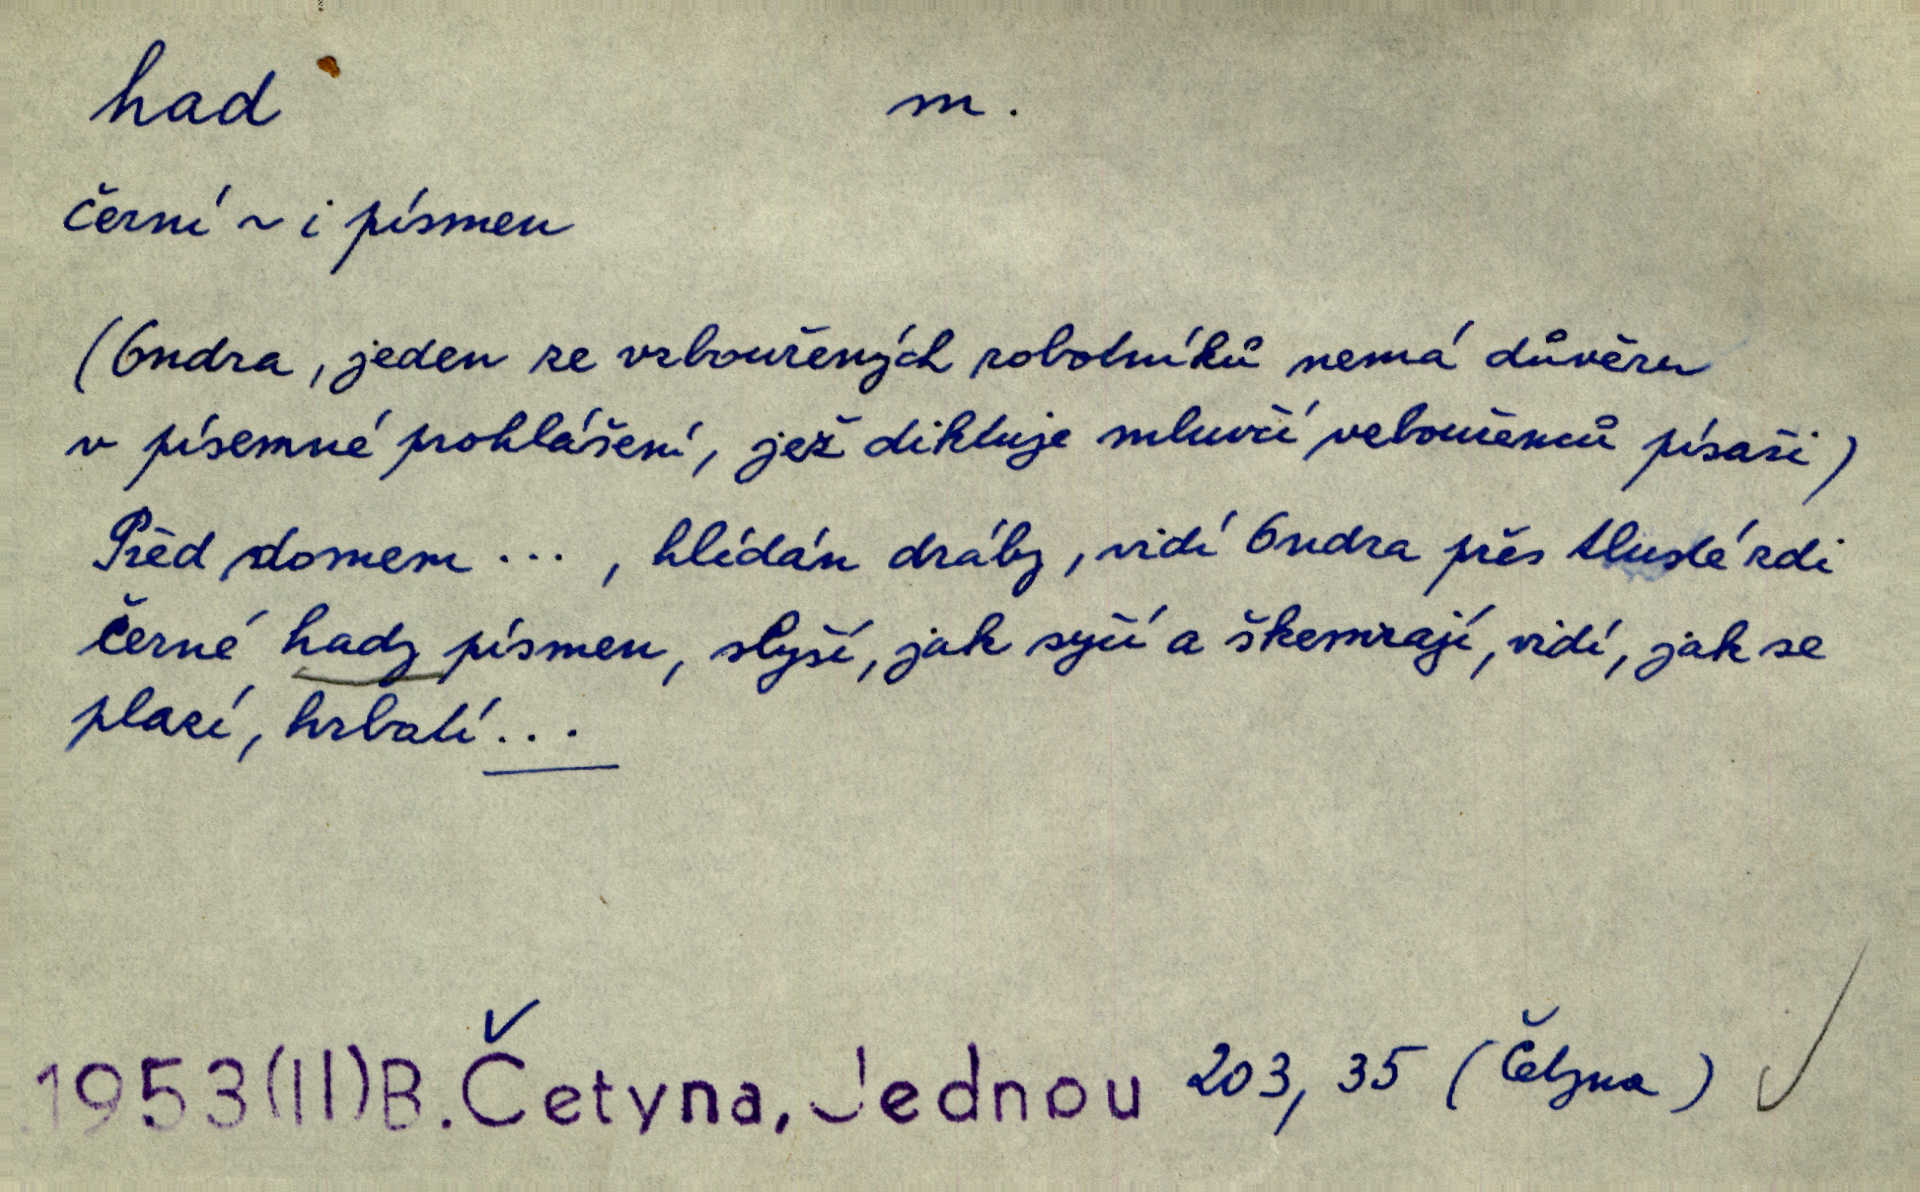 had m.
černí ~i písmen
(Ondra, jeden ze vzbouřených robotníků nemá důvěru
v písemné prohlášení, jež diktuje mluvčí vzbouřenců písaři)
Před domem ..., hlídán dráby, vidí Ondra přes tlusté zdi
černé hady písmen, slyší, jak syčí a škemrají, vidí, jak se
plazí, hrbatí...
1953(II)B. Četyna, Jednou 203, 35 (Četyna)